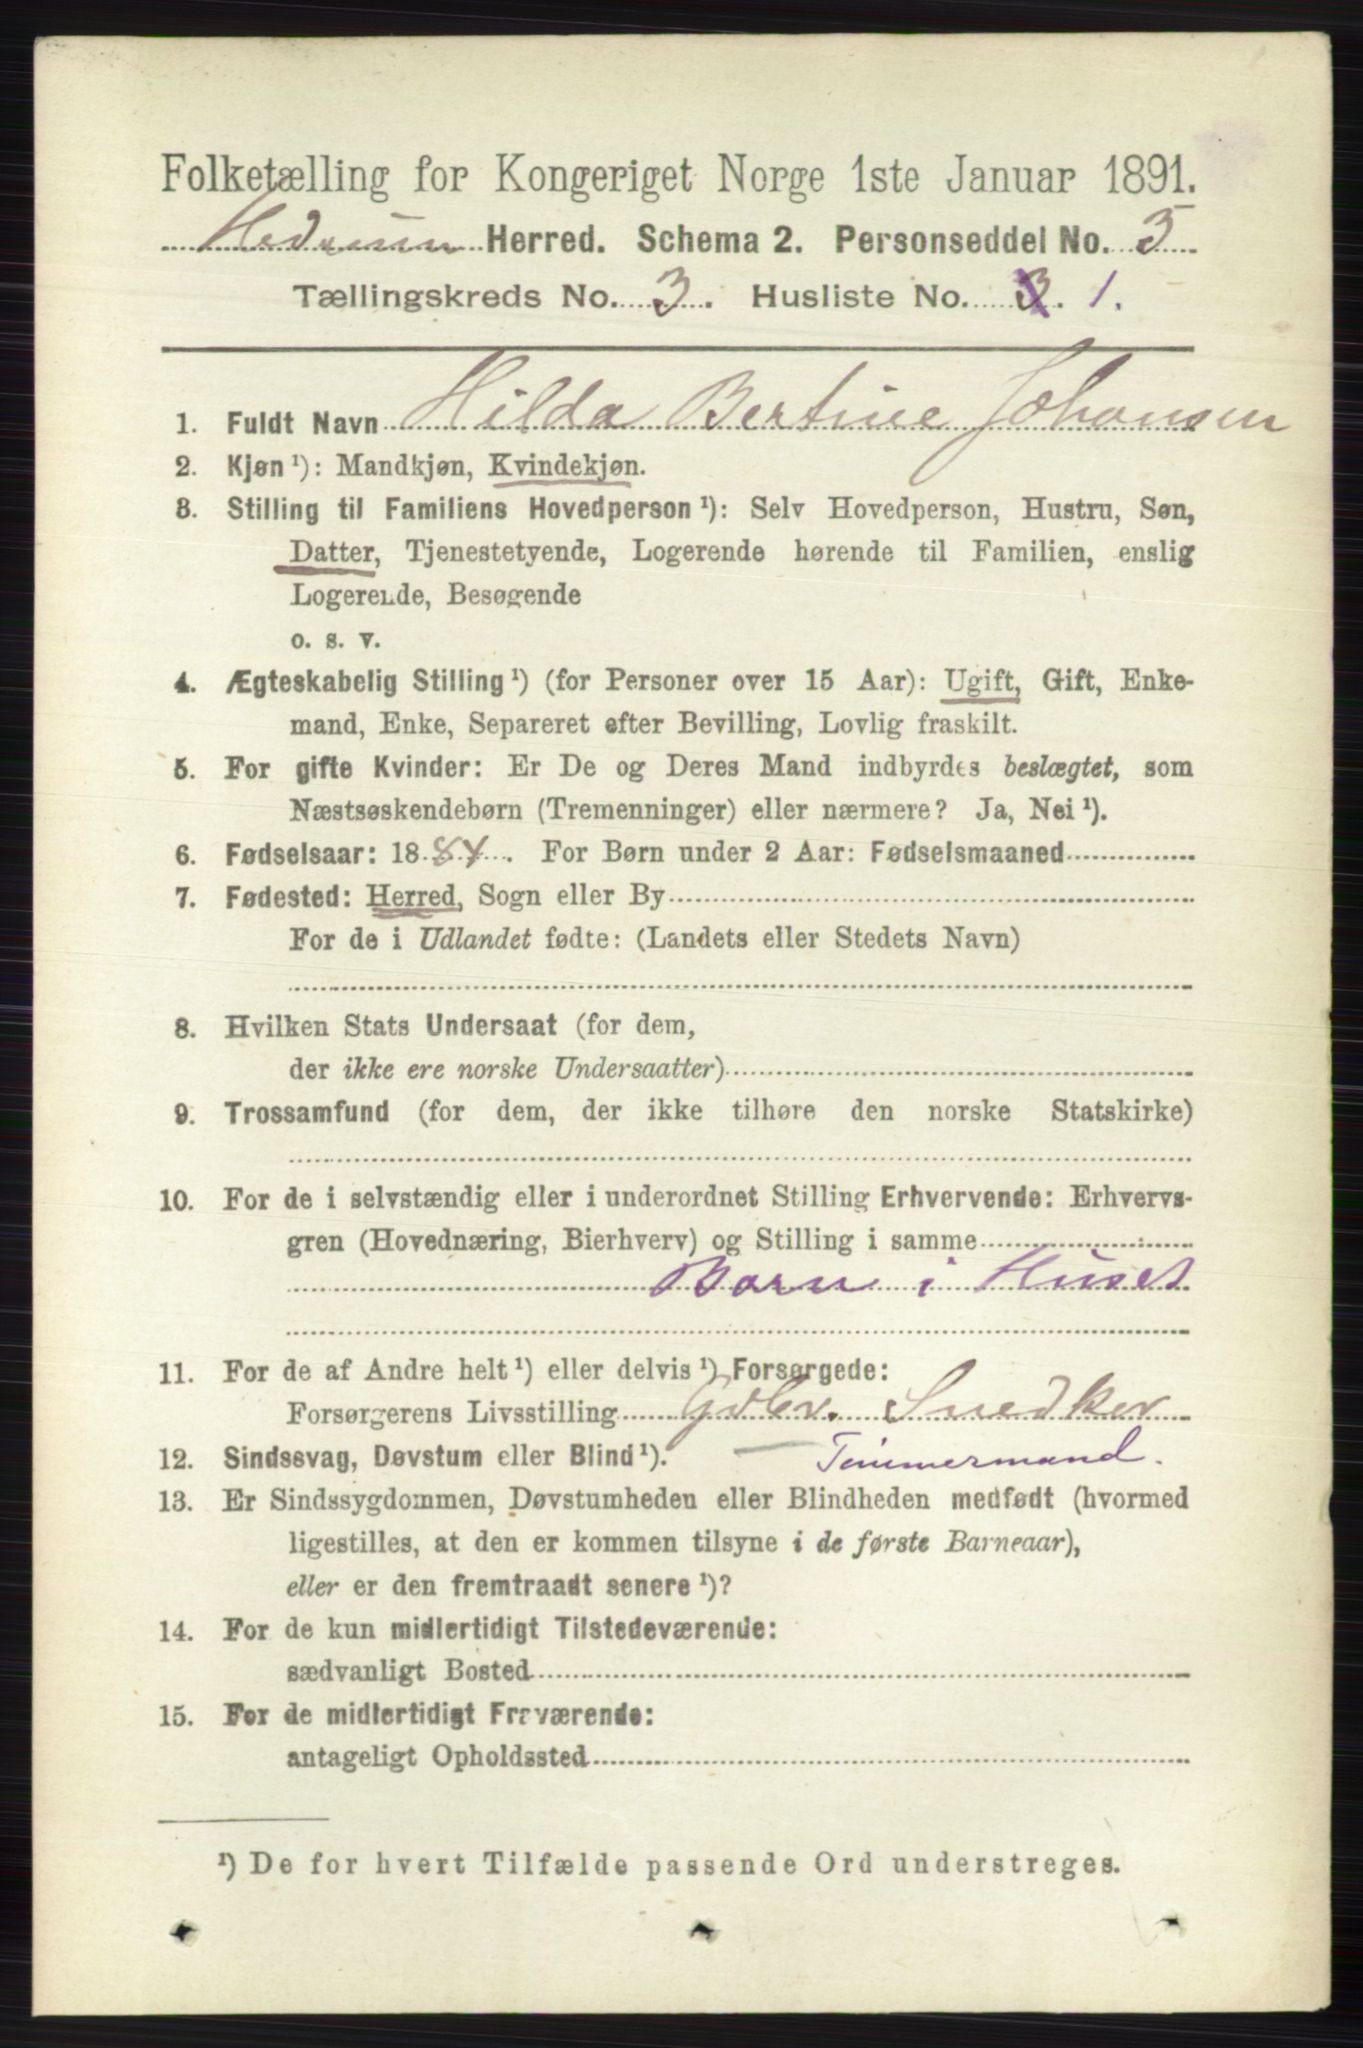 Folketælling for Kongeriget Norge 1ste Januar 1891.
Hedrum Herred. Schema 2. Personseddel No. 5
Tællingskreds No. 3. Husliste No. 3. 1.
1. Fuldt Navn Hilda Bertine Johansen
2. Kjøn ¹): Mandkjøn, Kvindekjøn.
3. Stilling til Familiens Hovedperson ¹): Selv Hovedperson, Hustru, Søn,
Datter, Tjenestetyende, Logerende hørende til Familien, enslig
Logerende, Besøgende
o. s. v.
4. Ægteskabelig Stilling ¹) (for Personer over 15 Aar): Ugift, Gift, Enke-
mand, Enke, Separeret efter Bevilling, Lovlig fraskilt.
5. For gifte Kvinder: Er De og Deres Mand indbyrdes beslægtet, som
Næstsøskendebørn (Tremenninger) eller nærmere? Ja, Nei ¹).
6. Fødselsaar: 1884. For Børn under 2 Aar: Fødselsmaaned
7. Fødested: Herred, Sogn eller By
For de i Udlandet fødte: (Landets eller Stedets Navn)
8. Hvilken Stats Undersaat (for dem,
der ikke ere norske Undersaatter)
9. Trossamfund (for dem, der ikke tilhøre den norske Statskirke)
10. For de i selvstændig eller i underordnet Stilling Erhvervende: Erhvervs-
gren (Hovednæring, Bierhverv) og Stilling i samme
Barn i Huset
11. For de af Andre helt ¹) eller delvis ¹) Forsørgede:
Forsørgerens Livsstilling Gdbr. Snedker
12. Sindssvag, Døvstum eller Blind ¹). — Tømmermand.
13. Er Sindssygdommen, Døvstumheden eller Blindheden medfødt (hvormed
ligestilles, at den er kommen tilsyne i de første Barneaar),
eller er den fremtraadt senere ¹)?
14. For de kun midlertidigt Tilstedeværende:
sædvanligt Bosted
15. For de midlertidigt Fraværende:
antageligt Opholdssted
¹) De for hvert Tilfælde passende Ord understreges.